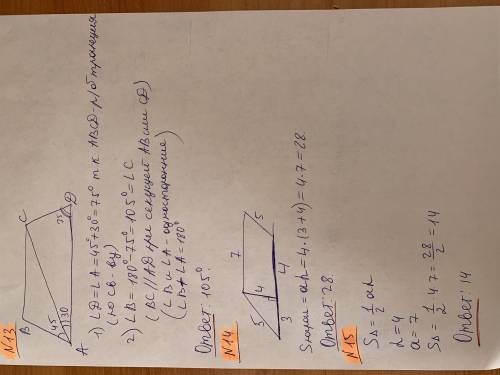 N13
B
C
45
30
75
A
D
1) ∠D=∠A=45°+30°=75° т.к ABCD-р/б трапеция
(по св ву)
2) ∠B=180°-75°=105°=∠C
(BC//AD при секущей AB или CD)
(∠B и ∠A - односторонние
∠B+∠A=180°)
Ответ: 105°.
N14
7
5
4
5
3
4
Sпарал=ah=4·(3+4)=4·7=28
Ответ: 28.
N15
S△=1/2 ah
h=4
a=7
S△=1/2 47=28/2=14
Ответ: 14